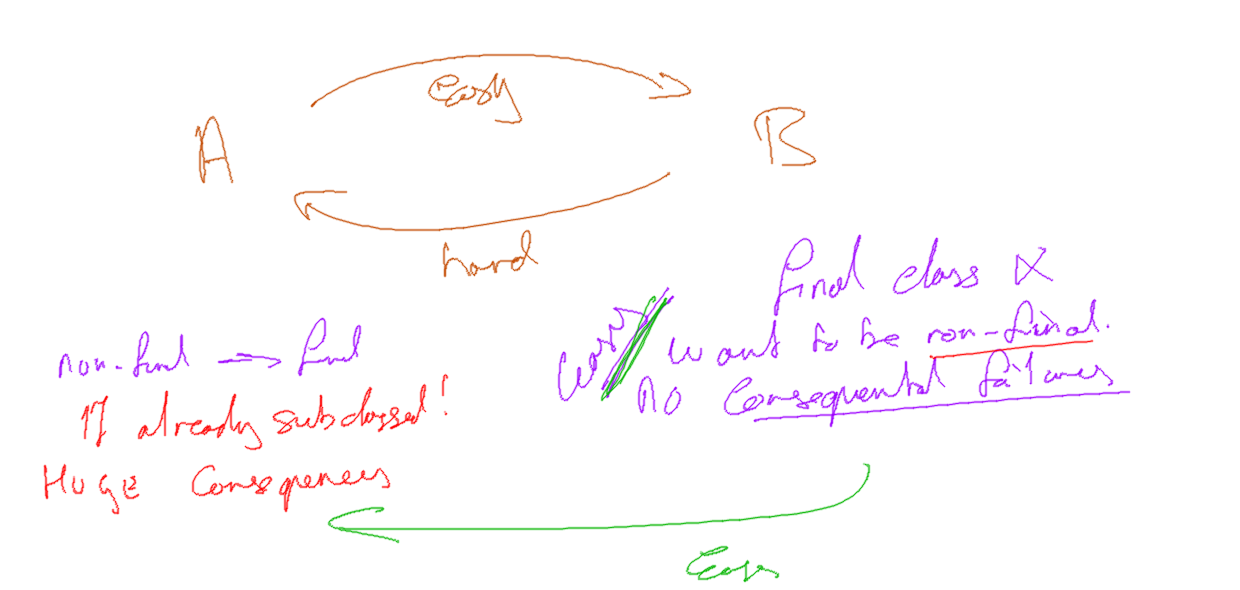 easy
A
B
hard
final class X
want to be non-final.
no consequential failures
non-final → final
If already subclassed!
HUGE Consequences
Easy